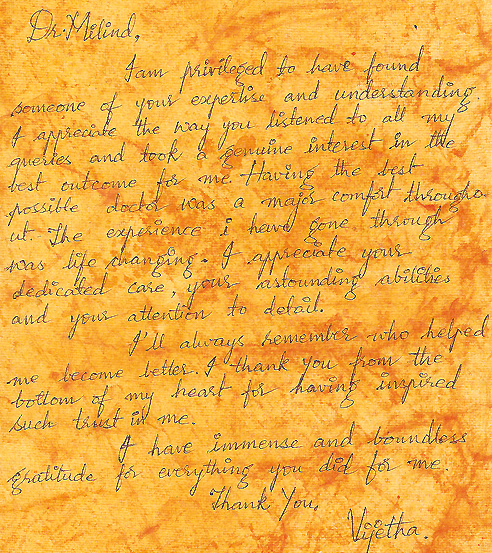 Dr. Milind,
I am privileged to have found
someone of your expertise and understanding.
I appreciate the way you listened to all my
queries and took a genuine interest in the
best outcome for me. Having the best
possible doctor was a major comfort througho-
ut. The experience i have gone through
was life changing. I appreciate your
dedicated care, your astounding abilities
and your attention to detail.
I'll always remember who helped
me become better. I thank you from the
bottom of my heart for having inspired
such trust in me.
I have immense and boundless
gratitude for everything you did for me.
Thank You.
Vijetha.